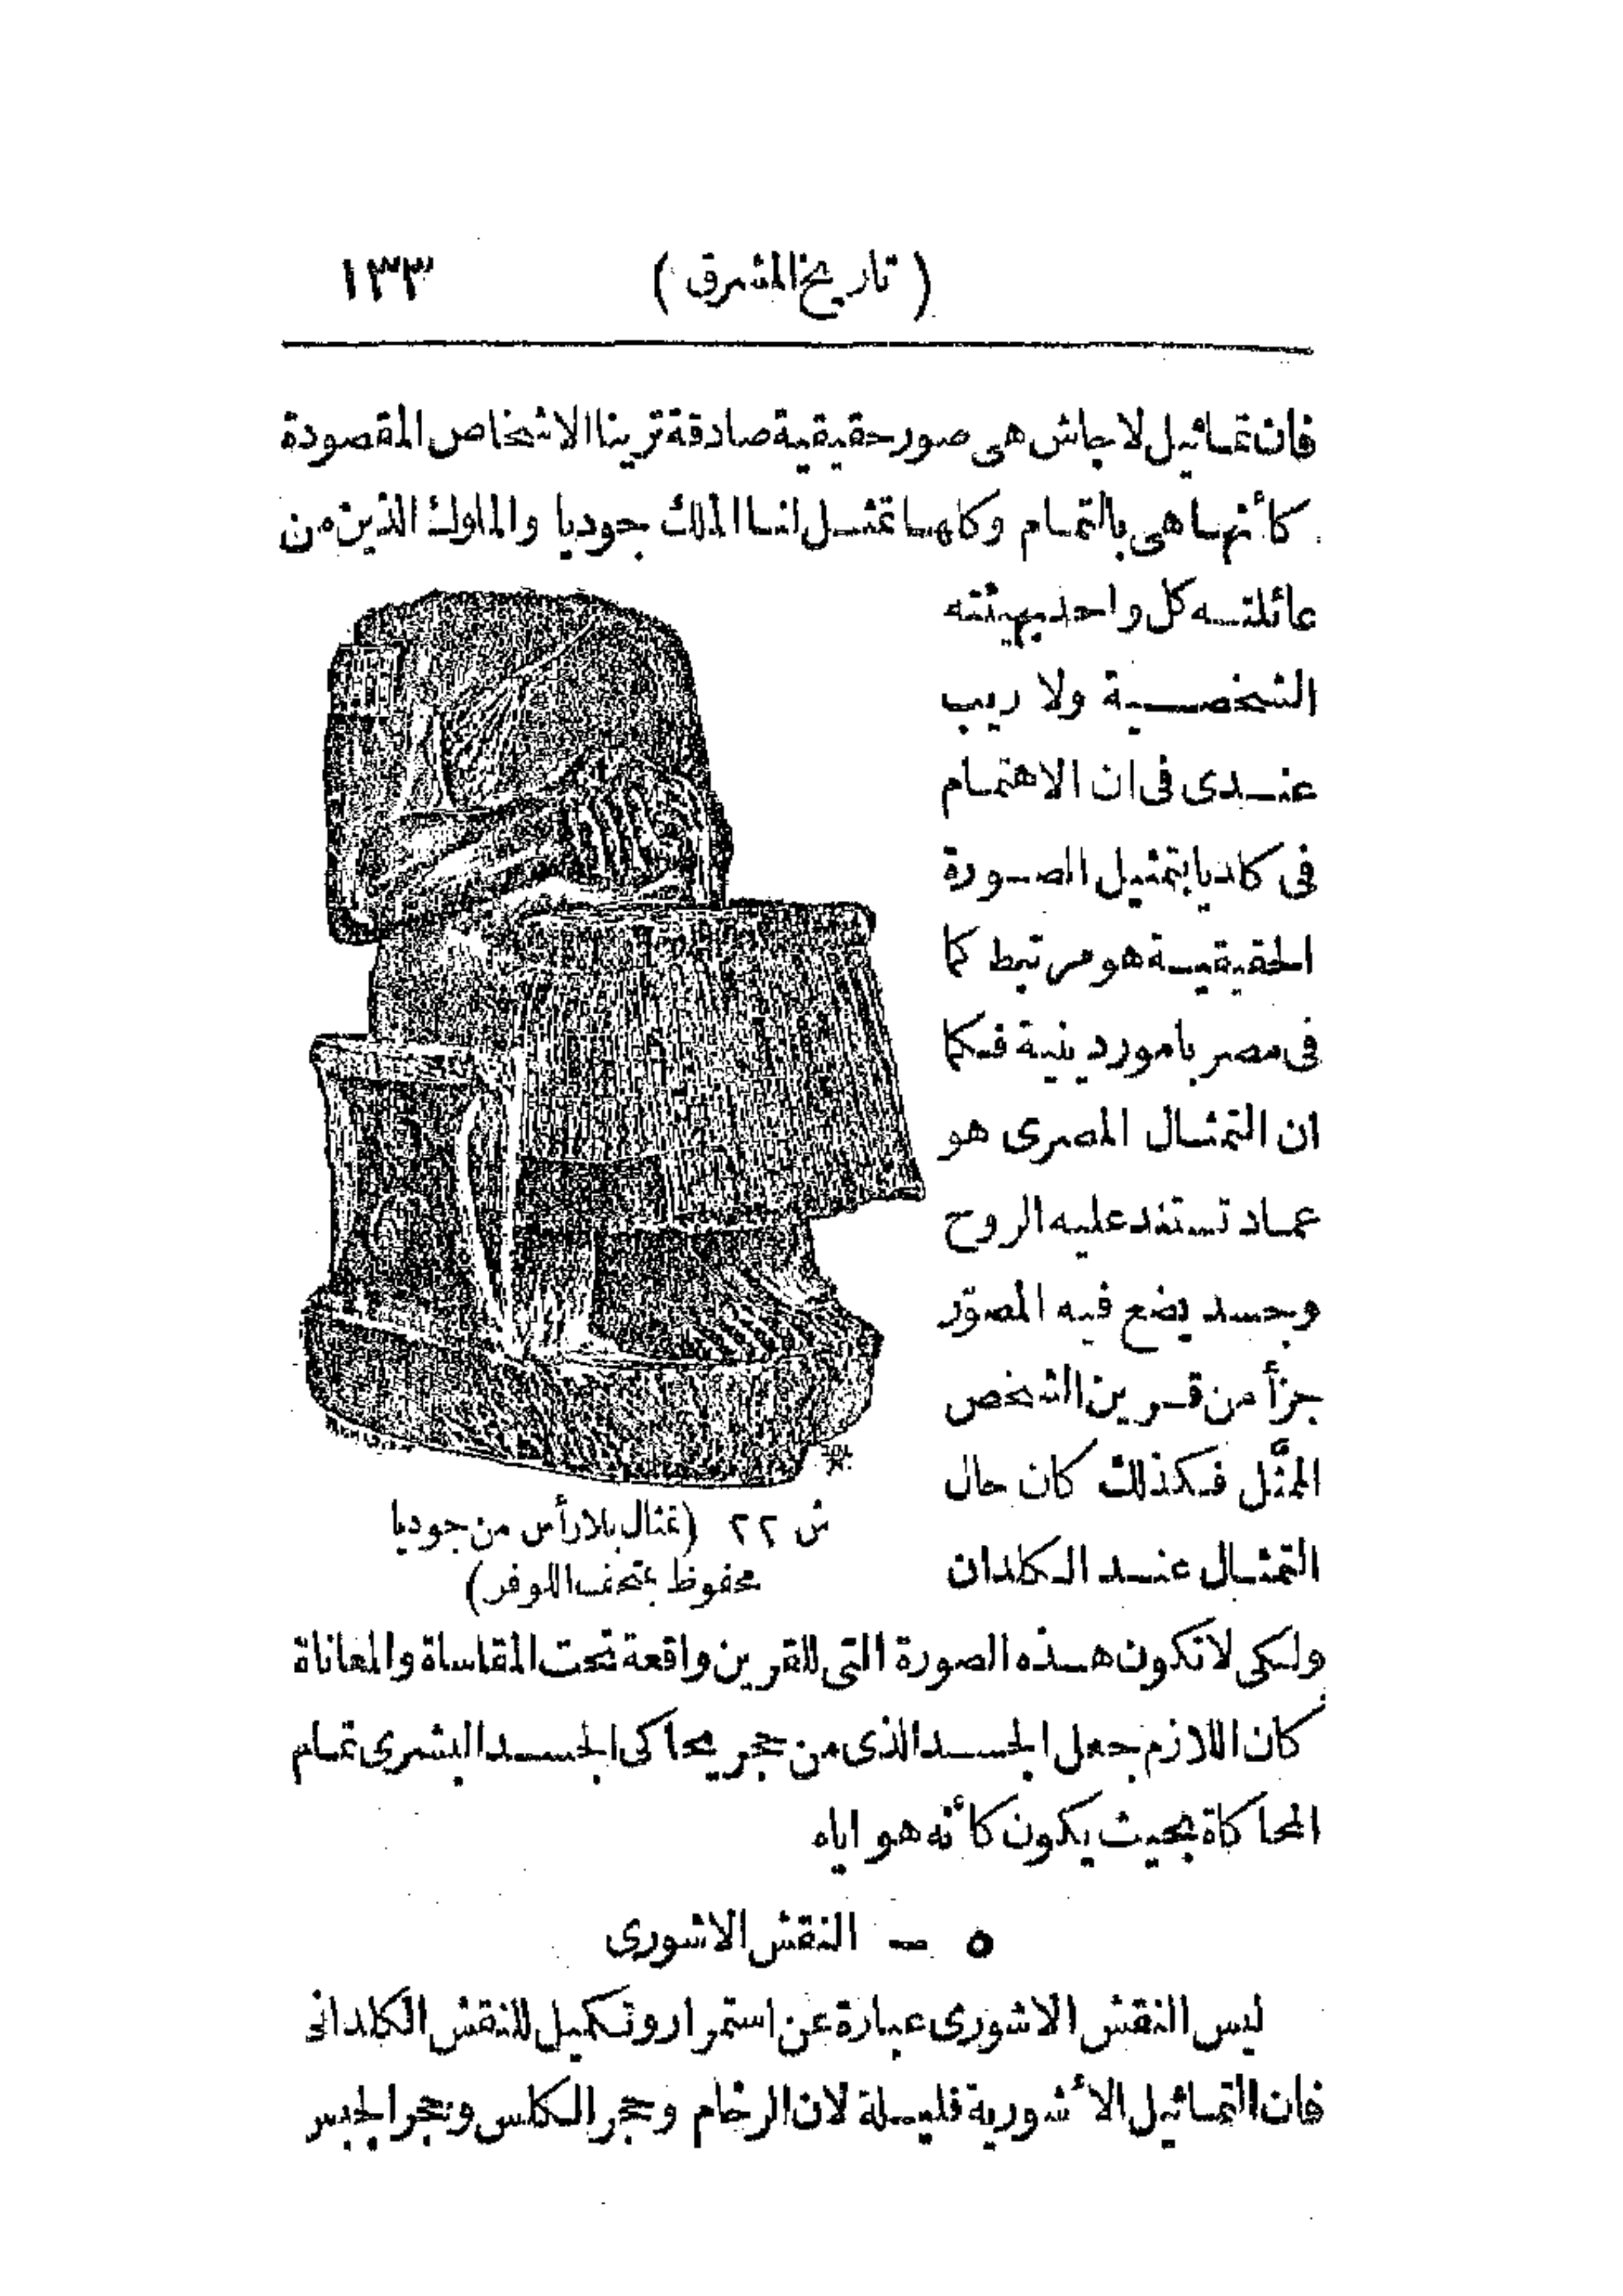 ( تاريخ المشرق ) ١٣٣
فان تماثيل لاجاش هى صور حقيقية صادقة ترينا الاشخاص المقصودة
كأنها هى بالتمام وكلها تمثل لنا الملك جوديا والملوك الذين من
عائلته كل واحد بهيئته
الشخصية ولا ريب
عندى فى ان الاهتمام
فى كلديا بتمثيل الصورة
الحقيقية هو مرتبط كما
فى مصر بامور دينية فكما
ان التمثال المصرى هو
عماد تستند عليه الروح
وجسد يضع فيه المصوّر
جزأ من قرين الشخص
الممثَّل فكذلك كان حال
التمثال عند الكلدان
ش ٢٢ (تمثال بلا رأس من جوديا
محفوظ بمتحف اللوفر)
ولكى لا تكون هذه الصورة التى للقرين واقعة تحت المقاساة والمعاناة
كان اللازم جعل الجسد الذى من حجر يحاكى الجسد البشرى تمام
المحاكاة بحيث يكون كأنه هو اياه
٥ – النقش الاشورى
ليس النقش الاشورى عبارة عن استمرار وتكميل للنقش الكلدانى
فان التماثيل الأشورية قليلة لان الرخام وحجر الكلس وحجر الجبس